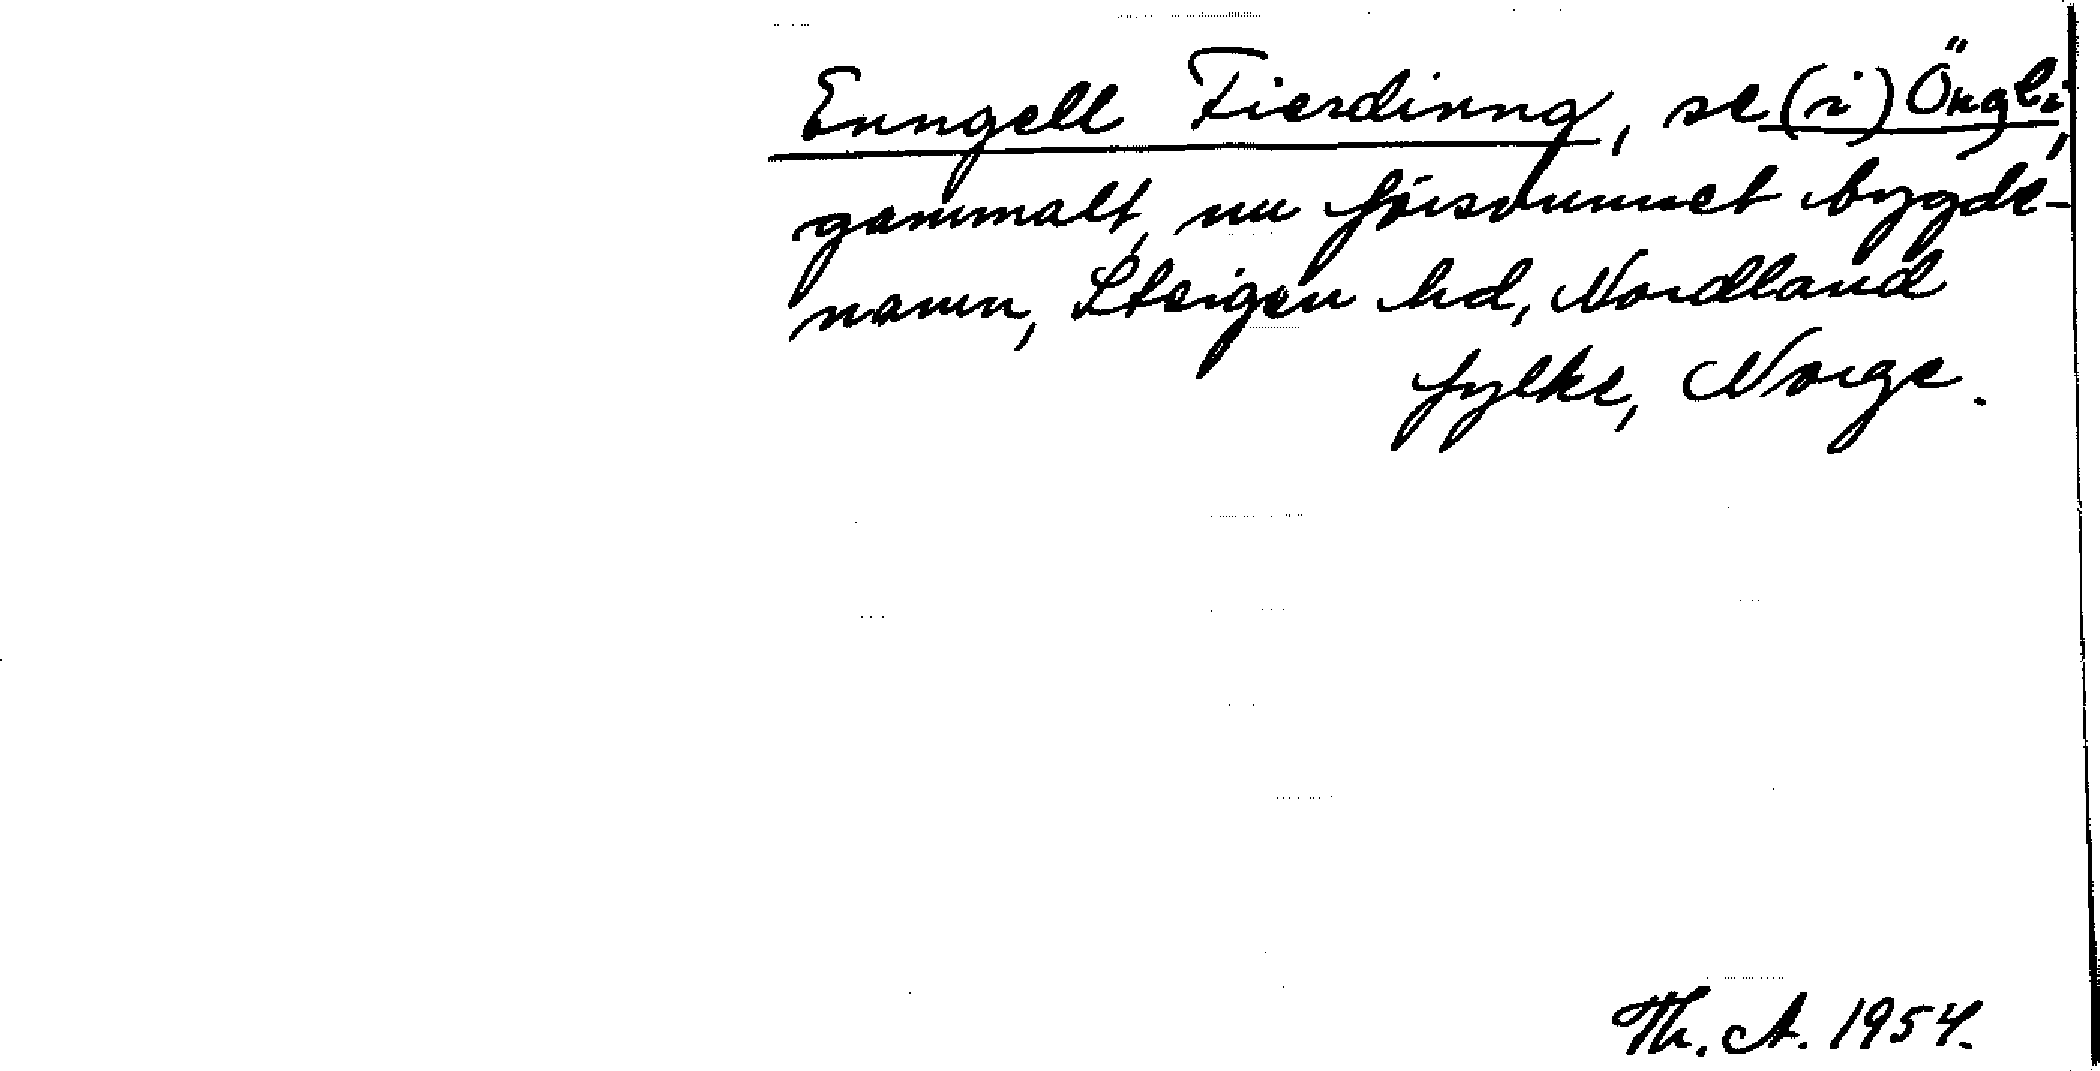 Enngell Fierdinng, se (i) Öngli,
gammalt, nu försvunnet bygde-
namn, Steigen hd, Nordland
fylke, Norge.
Th. A. 1954.